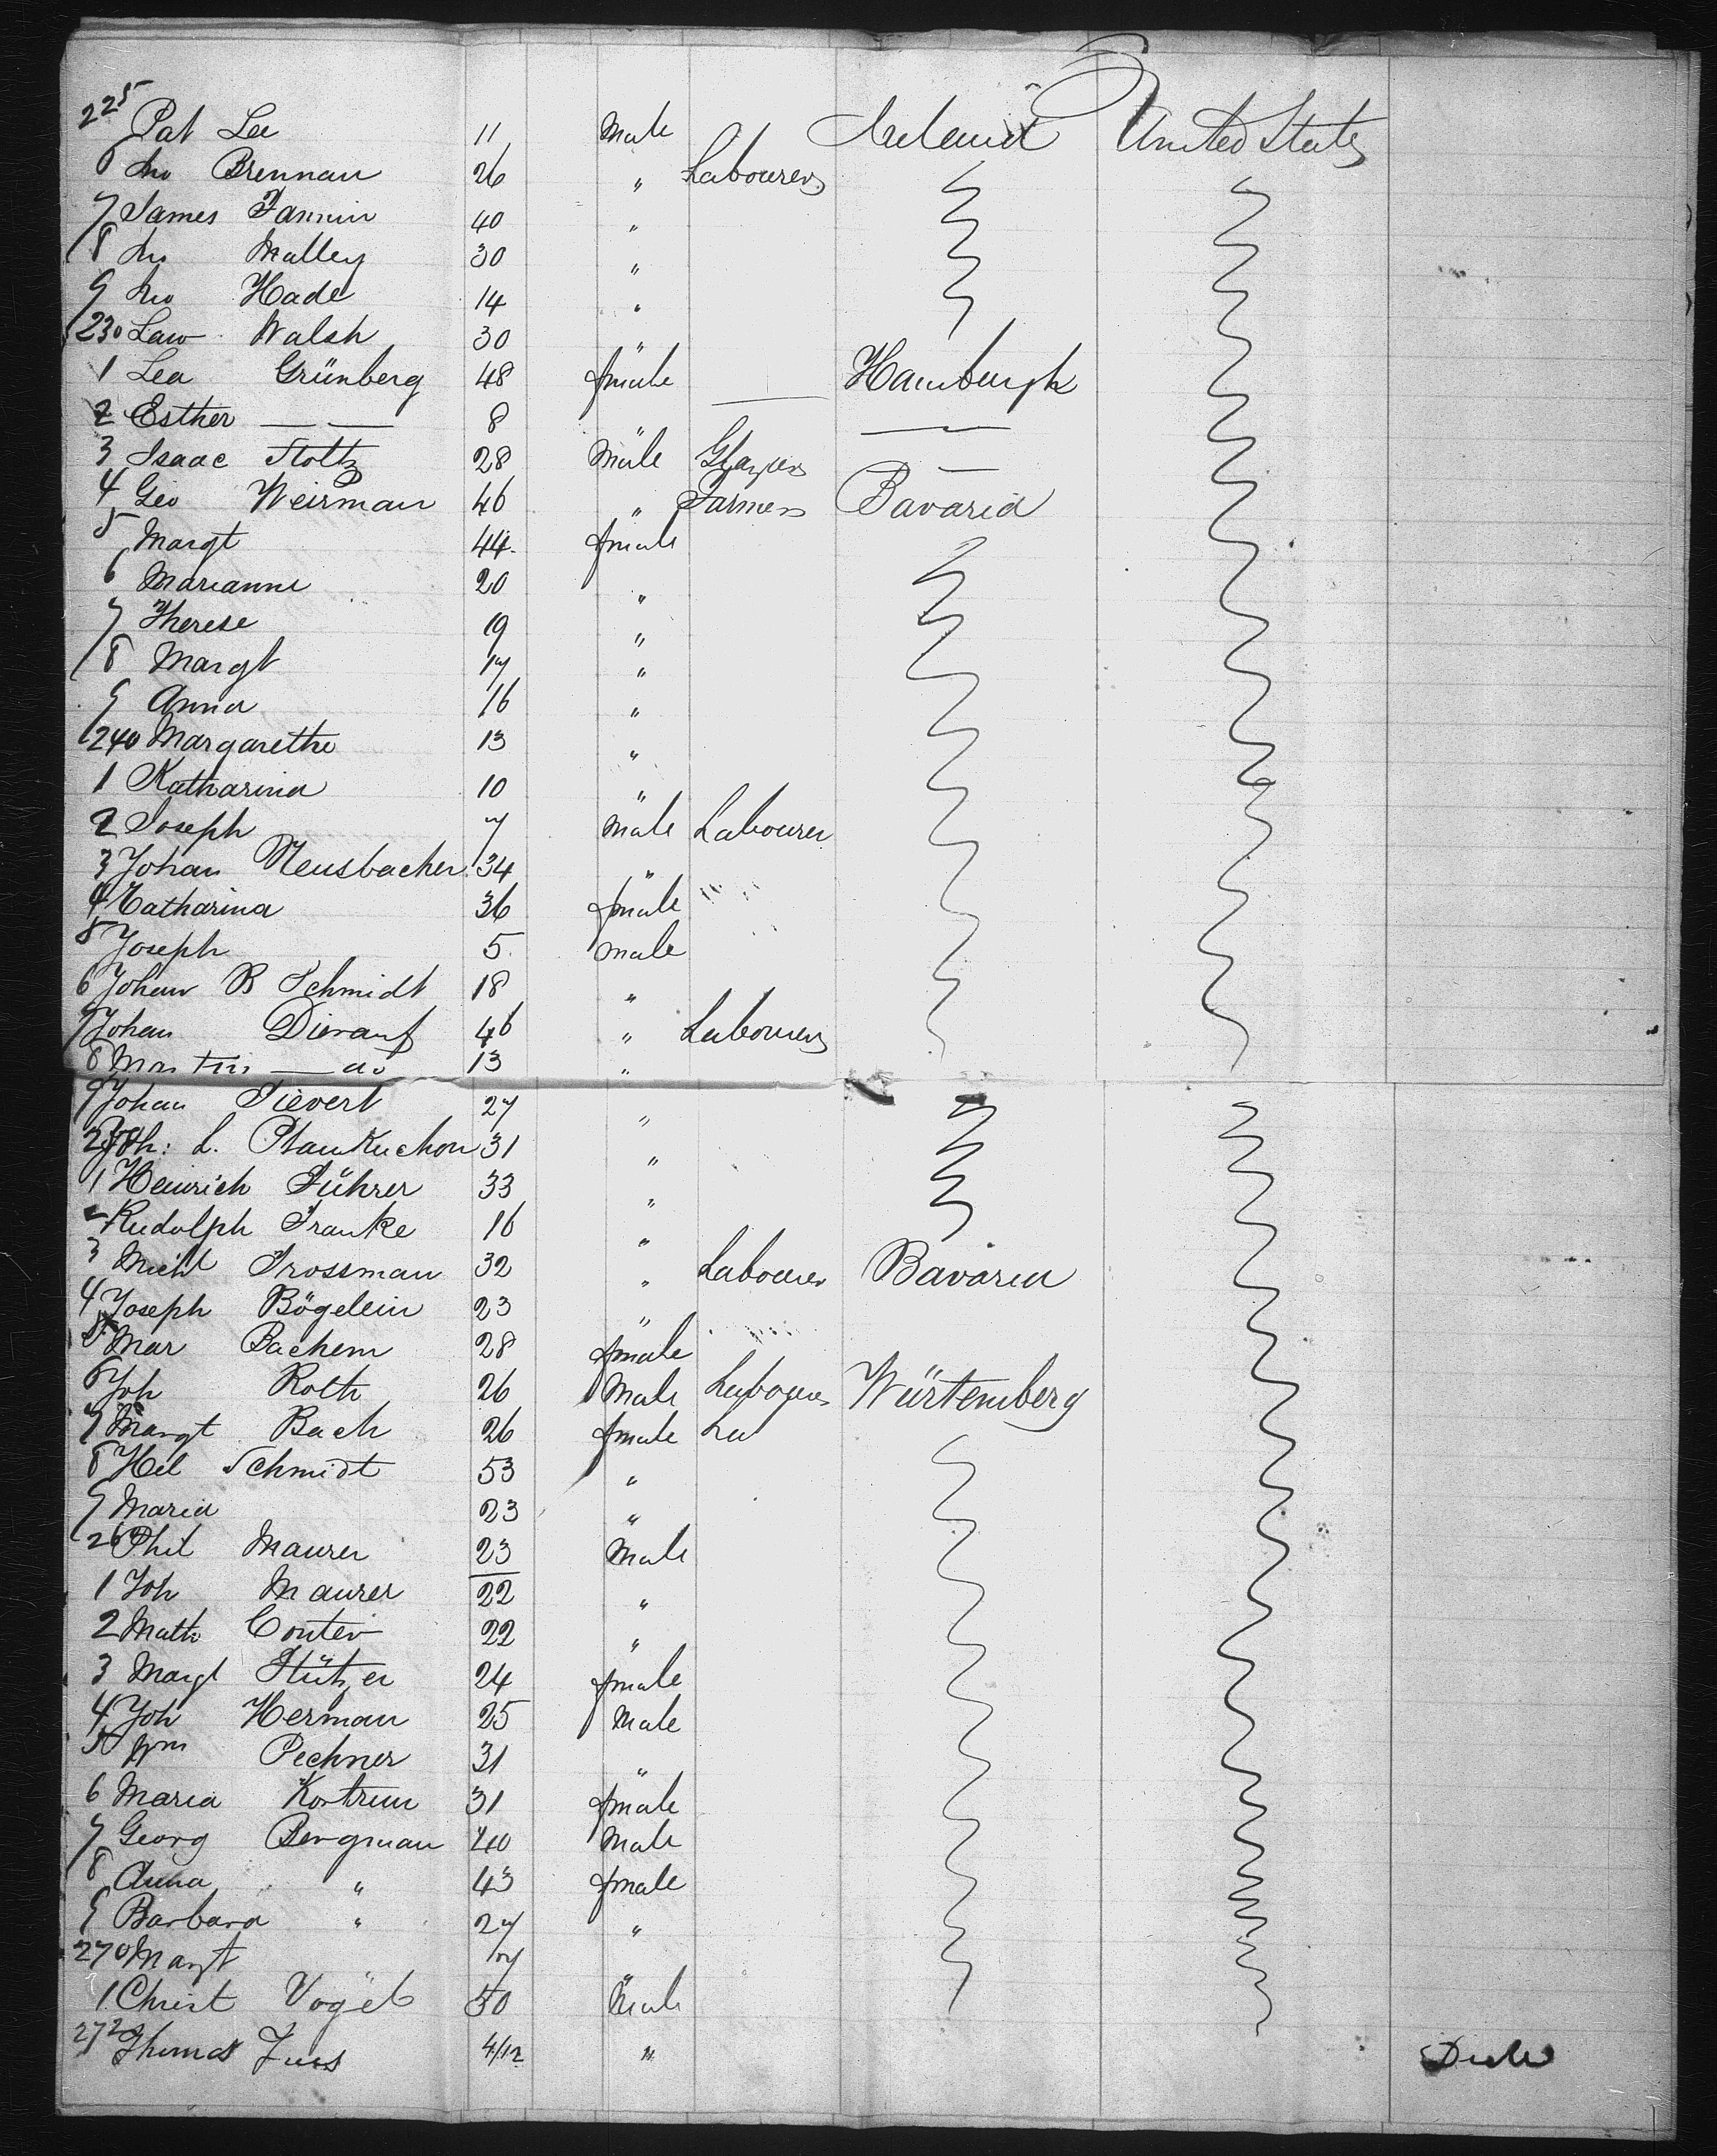 225 Pat Lee 11 Male Ireland United States
6 Jno Brennan 26 " Labourers
7 James Fannin 40 "
8 Jno Malley 30 "
9 Jno Hade 14 "
230 Law Walsh 30 "
1 Lea Grünberg 48 fmale Hamburgh
2 Esther — — 8 " —
3 Isaac Stoltz 28 Male Glazier —
4 Geo Weirman 46 " Farmer Bavaria
5 Margt 44 fmale
6 Marianne 20 "
7 Therese 19 "
8 Margt 17 "
9 Anna 16 "
240 Margarethe 13 "
1 Katharina 10 "
2 Joseph 7 Male Labourer
3 Johan Neusbacher 34 "
4 Catharina 36 fmale
5 Joseph 5 male
6 Johan B Schmidt 18 "
7 Johan Dierauf 46 " Labourers
8 Martin — do 13 "
9 Johan Sievert 27 "
250 Joh: L. Pfankuchon 31 "
1 Heinrich Führer 33 "
2 Rudolph Franke 16 "
3 Michl Trossman 32 " Labourer Bavaria
4 Joseph Bögelein 23 "
5 Mar Bachem 28 fmale
6 Joh Roth 26 Male Labourer Würtemberg
7 Margt Bach 26 fmale La
8 Hel Schmidt 53 "
9 Maria 23 "
260 Phil Maurer 23 Male
1 Joh Maurer 22 "
2 Math Conter 22 "
3 Margt Stützer 24 fmale
4 Joh Herman 25 Male
5 Wm Pechner 31 "
6 Maria Kortrum 31 fmale
7 Georg Bergman 40 Male
8 Anna " 43 fmale
9 Barbara " 27 "
270 Margt 17 "
1 Christ Vogel 50 Male
272 Thomas 4/12 " Died